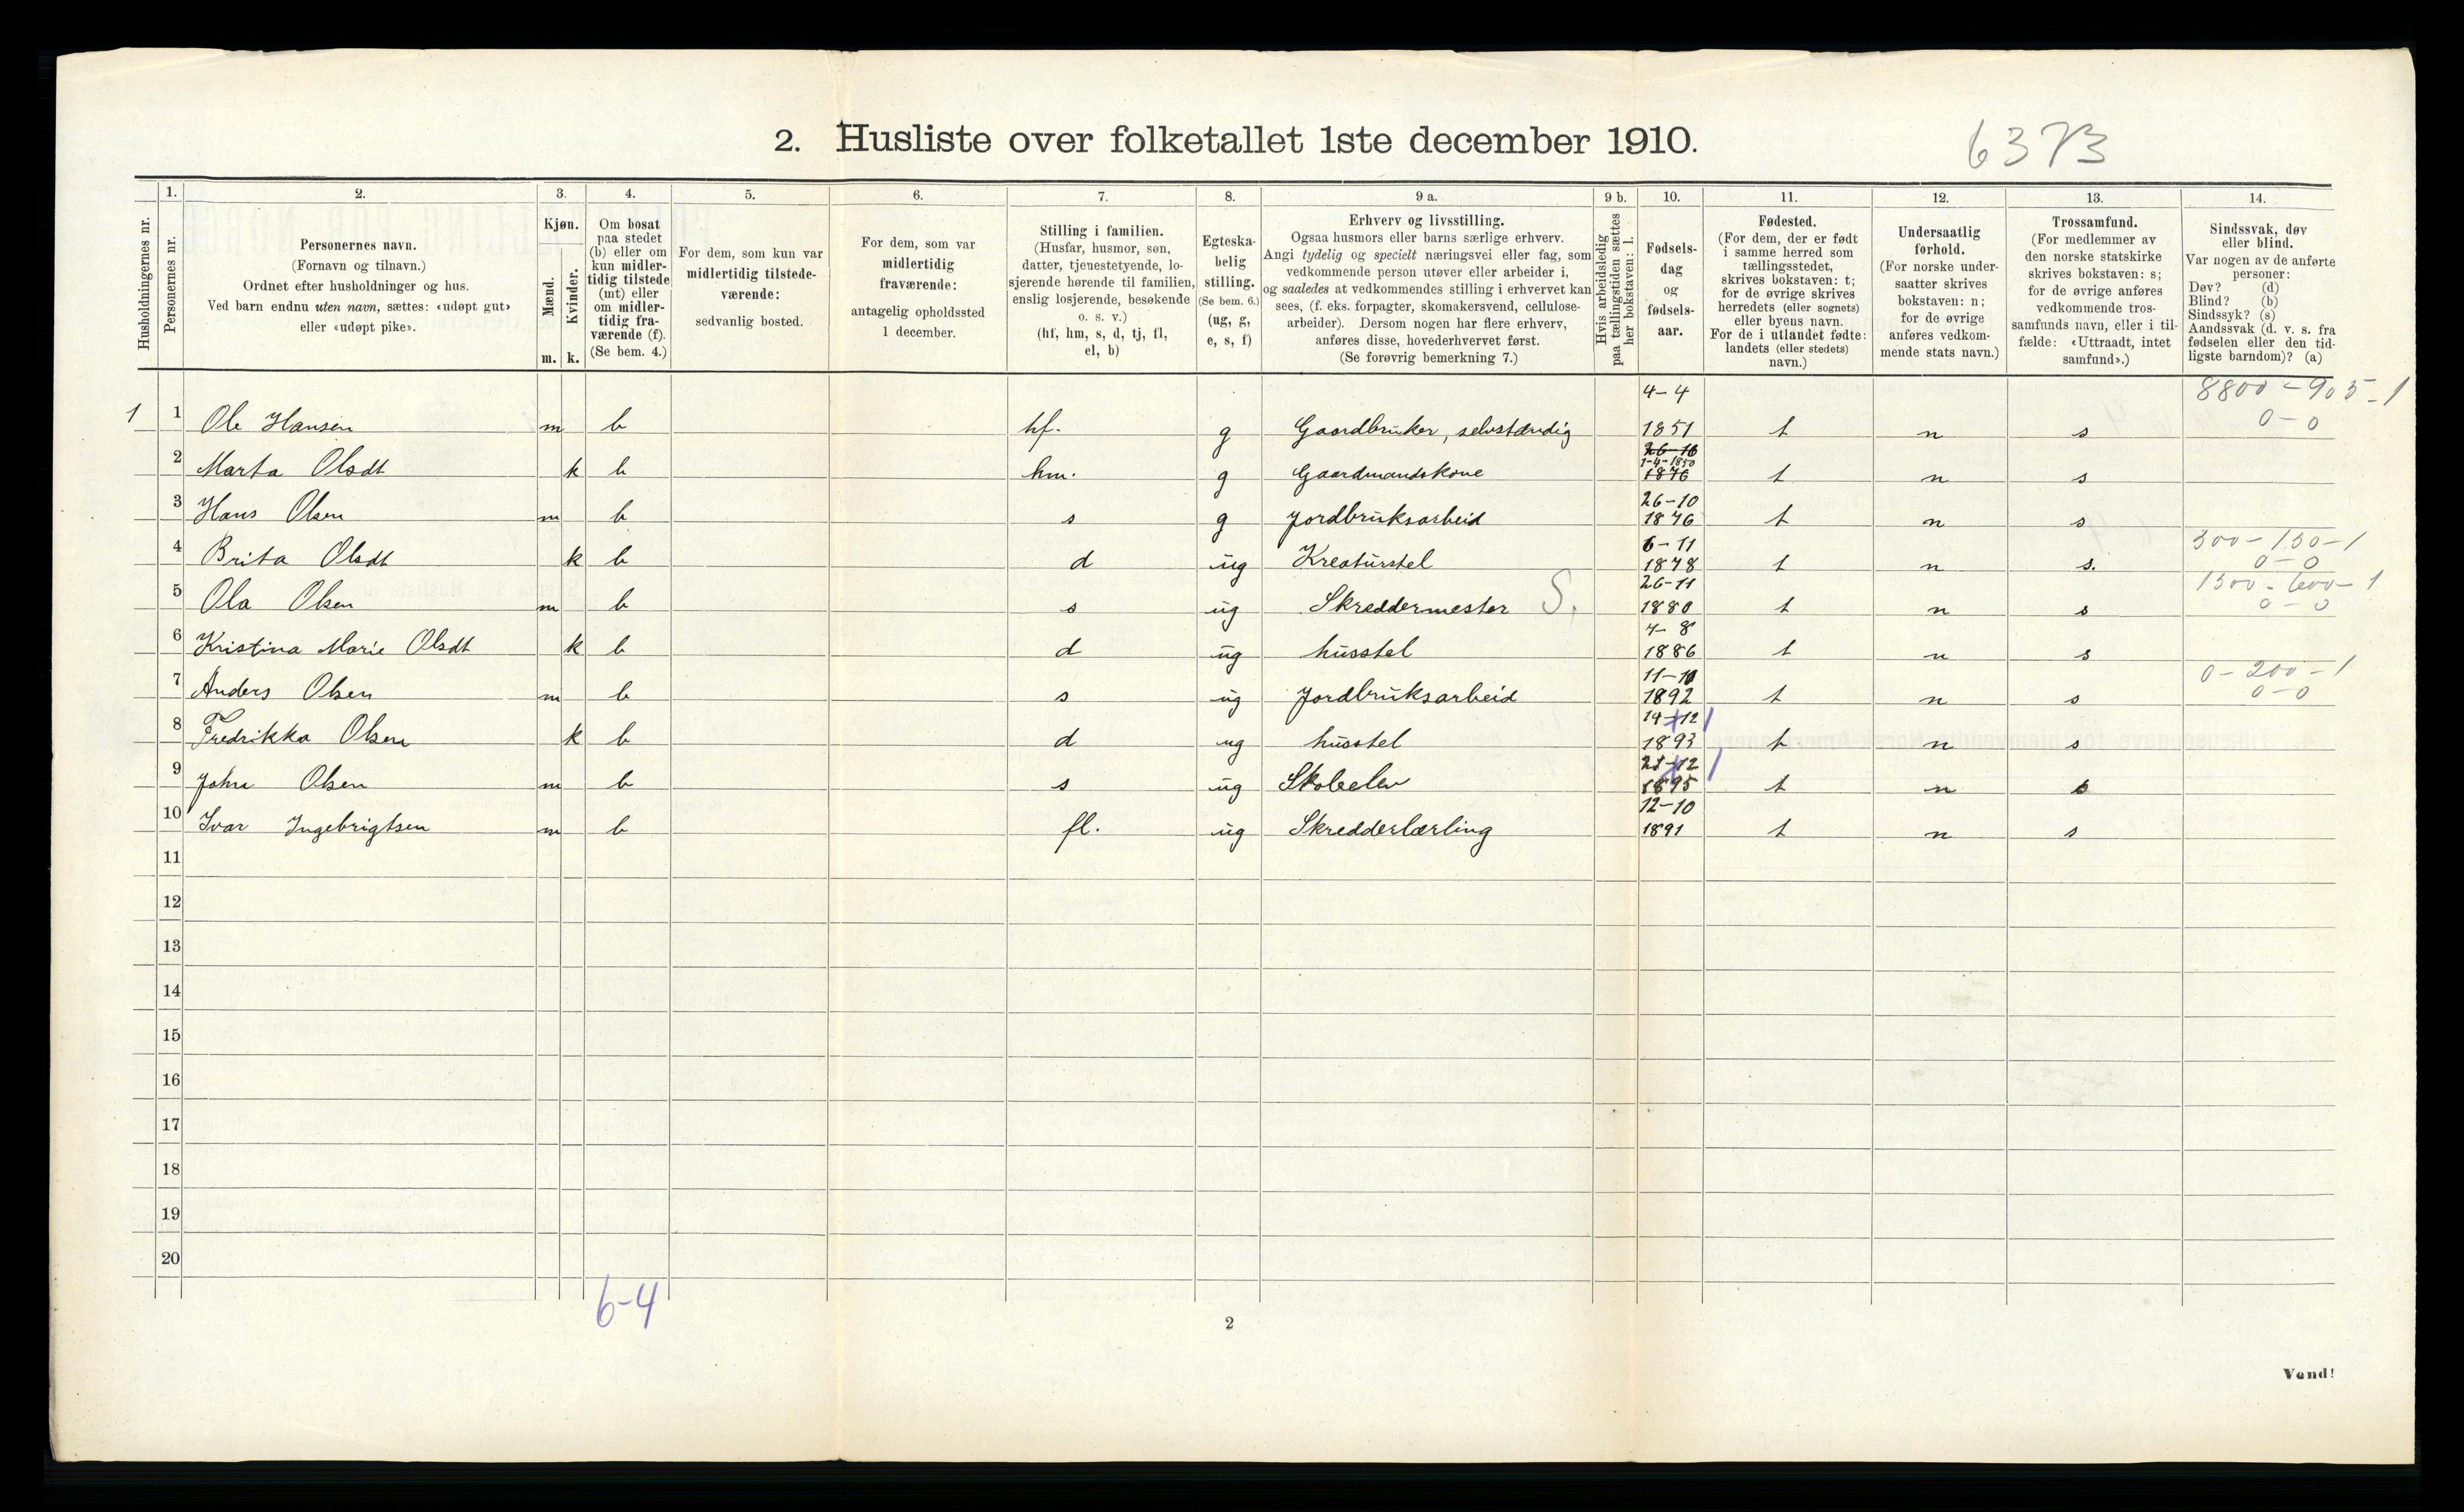 2. Husliste over folketallet 1ste december 1910.
6373
Husholdningernes nr.
1.
Personernes nr.
2.
Personernes navn.
(Fornavn og tilnavn.)
Ordnet efter husholdninger og hus.
Ved barn endnu uten navn, sættes: «udøpt gut»
eller «udøpt pike».
3.
Kjøn.
Mænd.
Kvinder.
m. k.
4.
Om bosat
paa stedet
(b) eller om
kun midler-
tidig tilstede
(mt) eller
om midler-
tidig fra-
værende (f).
(Se bem. 4.)
5.
For dem, som kun var
midlertidig tilstede-
værende:
sedvanlig bosted.
6.
For dem, som var
midlertidig
fraværende:
antagelig opholdssted
1 december.
7.
Stilling i familien.
(Husfar, husmor, søn,
datter, tjenestetyende, lo-
sjerende hørende til familien,
enslig losjerende, besøkende
o. s. v.)
(hf, hm, s, d, tj, fl,
el, b)
8.
Egteska-
belig
stilling.
(Se bem. 6.)
(ug, g,
e, s, f)
9 a.
Erhverv og livsstilling.
Ogsaa husmors eller barns særlige erhverv.
Angi tydelig og specielt næringsvei eller fag, som
vedkommende person utøver eller arbeider i,
og saaledes at vedkommendes stilling i erhvervet kan
sees, (f. eks. forpagter, skomakersvend, cellulose-
arbeider). Dersom nogen har flere erhverv,
anføres disse, hovederhvervet først.
(Se forøvrig bemerkning 7.)
9 b.
Hvis arbeidsledig
paa tællingstiden sættes
her bokstaven: l.
10.
Fødsels-
dag
og
fødsels-
aar.
11.
Fødested.
(For dem, der er født
i samme herred som
tællingsstedet,
skrives bokstaven: t;
for de øvrige skrives
herredets (eller sognets)
eller byens navn.
For de i utlandet fødte:
landets (eller stedets)
navn.)
12.
Undersaatlig
forhold.
(For norske under-
saatter skrives
bokstaven: n;
for de øvrige
anføres vedkom-
mende stats navn.)
13.
Trossamfund.
(For medlemmer av
den norske statskirke
skrives bokstaven: s;
for de øvrige anføres
vedkommende tros-
samfunds navn, eller i til-
fælde: «Uttraadt, intet
samfund».)
14.
Sindssvak, døv
eller blind.
Var nogen av de anførte
personer:
Døv? (d)
Blind? (b)
Sindssyk? (s)
Aandssvak (d. v. s. fra
fødselen eller den tid-
ligste barndom)? (a)
4-4 8800-905-1
1 1 Ole Hansen m b hf. g Gaardbruker, selvstændig 1851 t n s 0-0
26-10
1-4-1850
2 Marta Olsdt k b hm. g Gaardmandskone 1876 t n s
26-10
3 Hans Olsen m b s g Jordbruksarbeid 1876 t n s
6-11 300-150-1
4 Brita Olsdt k b d ug Kreaturstel 1878 t n s. 0-0
26-11 1500-600-1
5 Ola Olsen m b s ug Skreddermester S. 1880 t n s 0-0
4-8
6 Kristina Marie Olsdt k b d ug husstel 1886 t n s
11-10 0-200-1
7 Anders Olsen m b s ug Jordbruksarbeid 1892 t n s 0-0
14-12
8 Fredrikka Olsen k b d ug husstel 1893 t n s
21-12
9 John Olsen m b s ug Skoleelev 1895 t n s
12-10
10 Ivar Ingebrigtsen m b fl. ug Skredderlærling 1891 t n s
11
12
13
14
15
16
17
18
19
20
6-4
2
Vend!